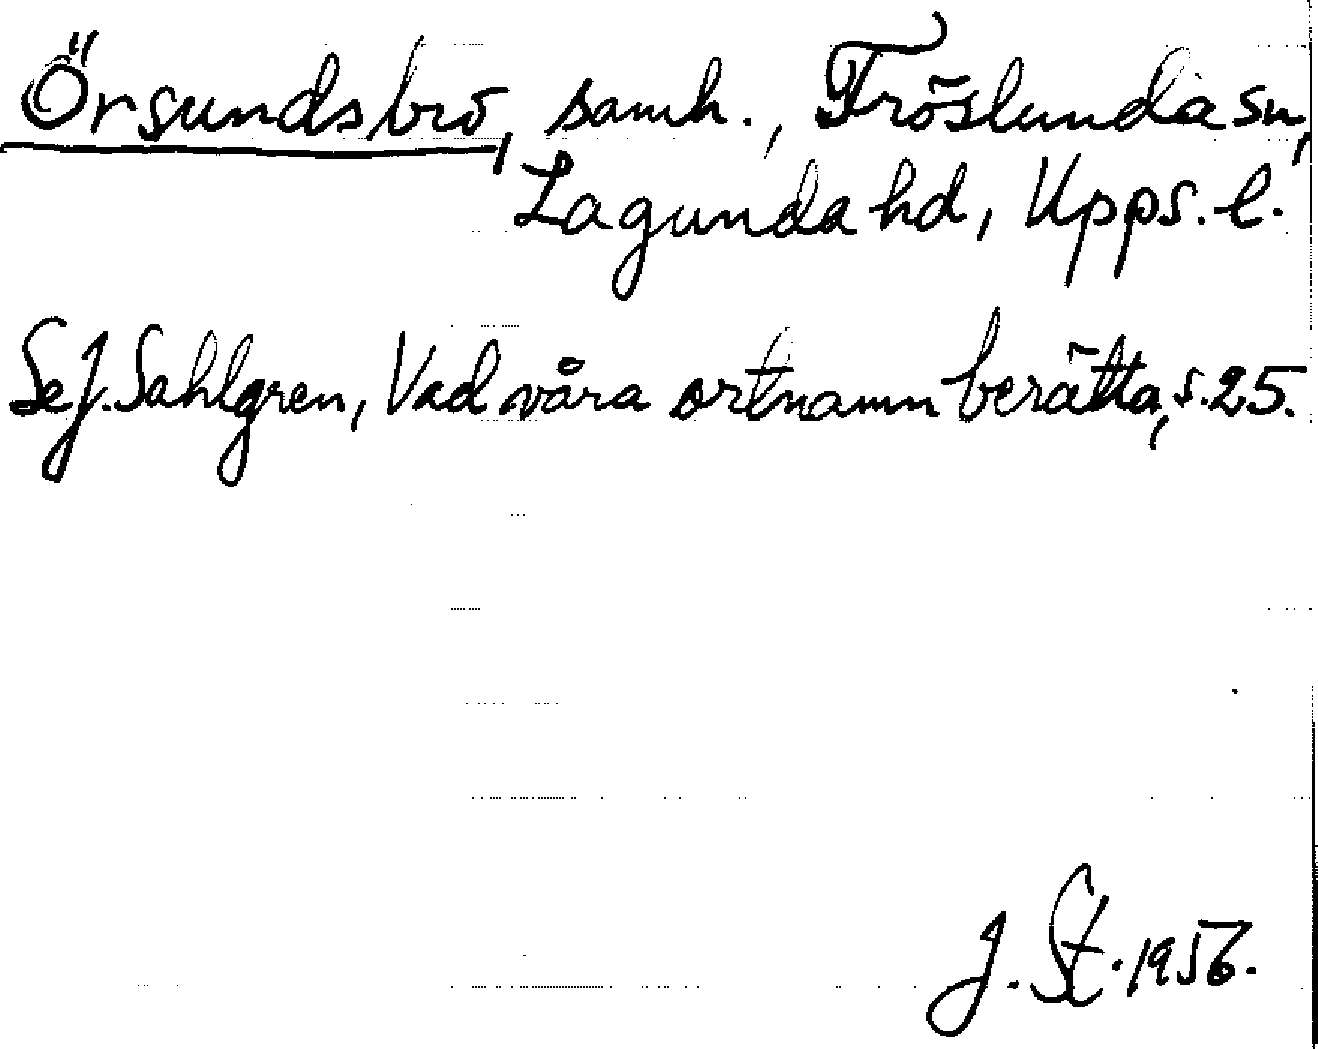 Örsundsbro, samh., Fröslunda sn,
Lagunda hd, Upps. l.
Se J. Sahlgren, Vad våra ortnamn berätta, s. 25.
J. St. 1956.